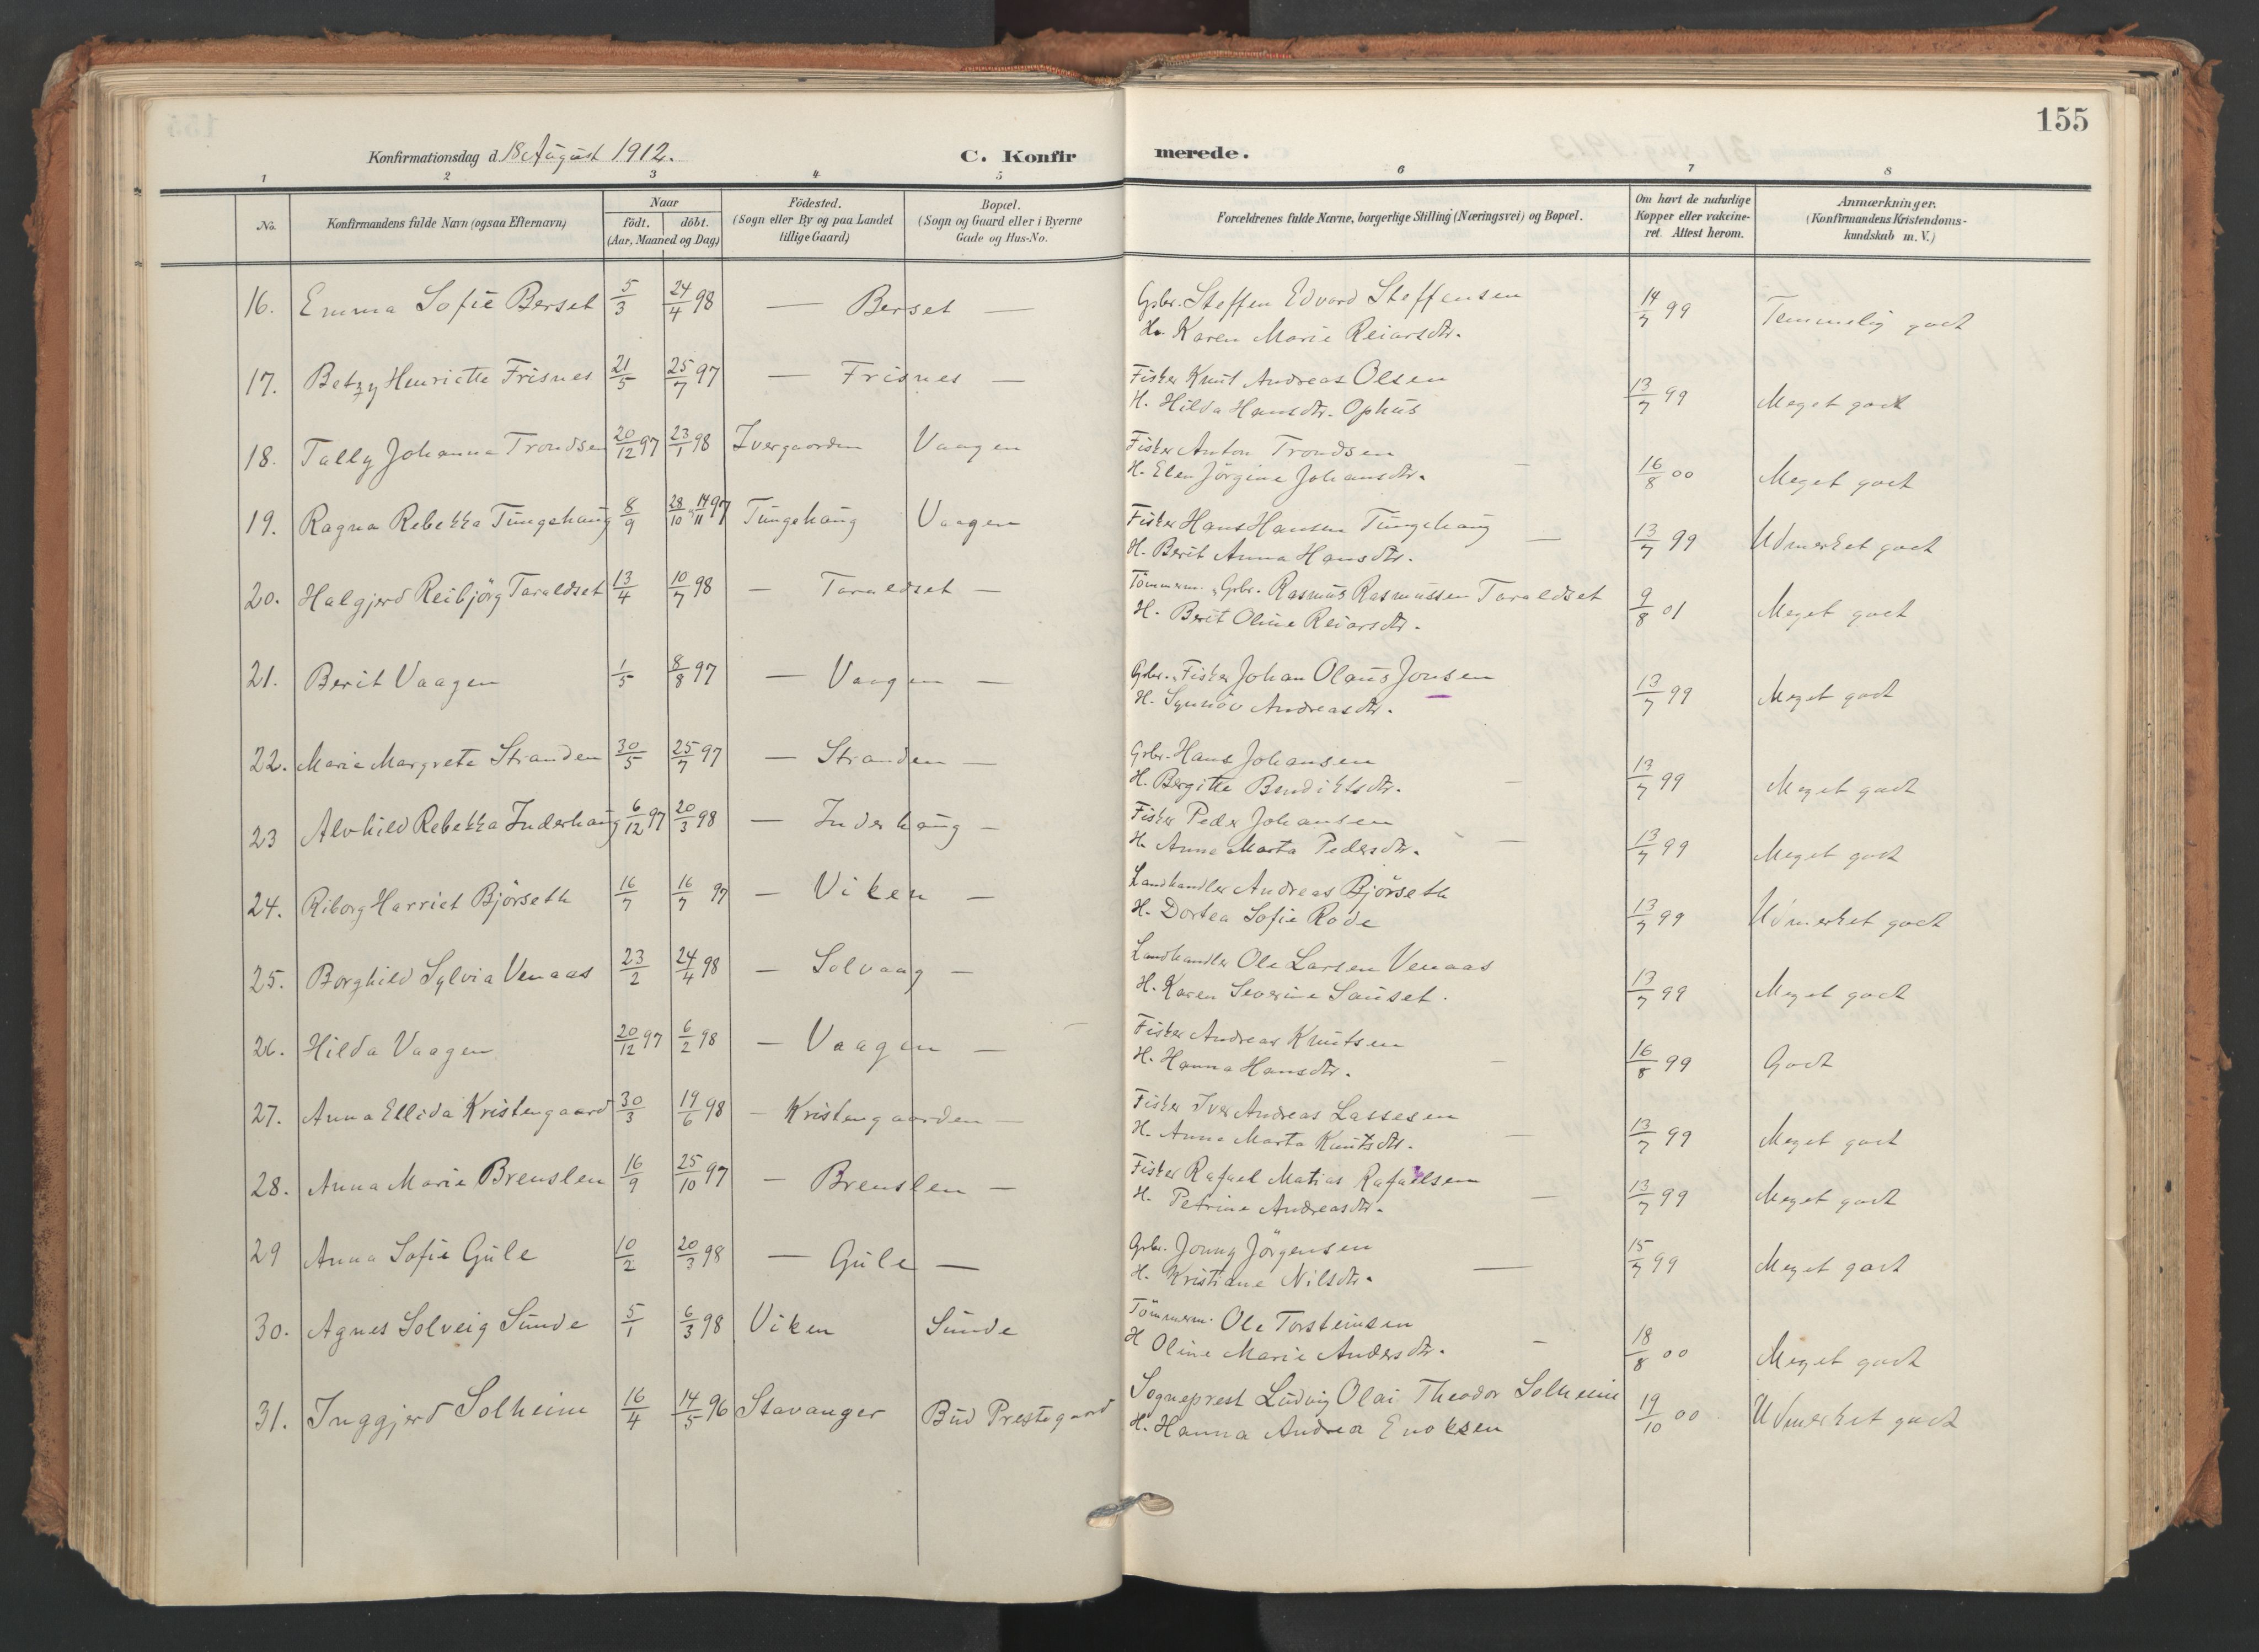 155
Konfirmationsdag d. 18 August 1912.
C. Konfirmerede.
1 2 3 4 5 6 7 8
No.
Konfirmandens fulde Navn (ogsaa Efternavn)
Naar
födt. döbt.
(Aar, Maaned og Dag)
Födested.
(Sogn eller By og paa Landet
tillige Gaard)
Bopæl.
(Sogn og Gaard eller i Byerne
Gade og Hus-No.
Forældrenes fulde Navne, borgerlige Stilling (Næringsvei) og Bopæl.
Om havt de naturlige
Kopper eller vakcine-
ret. Attest herom.
Anmærkninger.
(Konfirmandens Kristendoms-
kundskab m. V.)
16. Emma Sofie Berset 5/3 24/4 98 — Berset — Gbr. Steffen Edvard Steffensen
H. Karen Marie Reiarsdtr. 14/7 99 Temmelig godt
17. Betzy Henriette Frisnes 21/5 25/7 97 — Frisnes — Fisker Knut Andreas Olsen
H. Hilda Hansdtr. Ophus 13/7 99 Meget godt
18. Tally Johanna Trondsen 20/12 97 23/1 98 Ivergaarden Vaagen Fisker Anton Trondsen
H. Elen Jörgine Johansdtr. — 16/8 00 Meget godt
19. Ragna Rebekka Tungehaug 8/9 28/10 14/11 97 Tungehaug Vaagen Fisker Hans Hansen Tungehaug
H. Berit Anna Hansdtr. — 13/7 99 Udmerket godt
20. Halgjerd Reibjörg Taraldset 13/4 10/7 98 — Taraldset — Tömmerm. & Gbr. Rasmus Rasmussen Taraldset
H. Berit Oline Reiarsdtr. 9/8 01 Meget godt
21. Berit Vaagen 1/5 8/8 97 — Vaagen — Gbr. & Fisker Johan Olaus Jonsen
H. Synnöv Andreasdtr. 13/7 99 Meget godt
22. Marie Margrete Stranden 30/5 25/7 97 — Stranden — Gbr. Hans Johansen
H. Bergitte Bendiktsdtr. — 13/7 99 Meget godt
23 Alvhild Rebekka Inderhaug 6/12 97 20/3 98 — Inderhaug — Fisker Peder Johansen
H. Anne Marta Pedersdtr. — 13/7 99 Meget godt
24. Riborg Harriet Björseth 16/7 16/7 97 — Viken — Landhandler Andreas Björseth
H. Dortea Sofie Rode 13/7 99 Udmerket godt
25. Borghild Sylvia Venaas 23/2 24/4 98 — Solvaag — Landhandler Ole Larsen Venaas
H. Karen Severine Sauset. 13/7 99 Meget godt
26. Hilda Vaagen 20/12 97 6/2 98 — Vaagen — Fisker Andreas Knutsen
H. Hanna Hansdtr. — 16/8 99 Godt
27. Anna Ellida Kristengaard 30/3 19/6 98 — Kristengaarden — Fisker Iver Andreas Lassesen
H. Anne Marta Knutsdtr. — 13/7 99 Meget godt
28. Anna Marie Brenslen 16/9 25/10 97 — Brenslen — Fisker Rafael Matias Rafaelsen
H. Petrine Andreasdtr. — 13/7 99 Meget godt
29 Anna Sofie Gule 10/2 20/3 98 — Gule — Gbr. Jonny Jörgensen
H. Kristiane Nilsdtr. — 15/7 99 Meget godt
30. Agnes Solveig Sunde 5/1 6/3 98 Viken Sunde Tömmerm. Ole Torsteinsen
H Oline Marie Andersdtr. — 18/8 00 Meget godt
31. Inggjerd Solheim 16/4 14/5 96 Stavanger Bud Prestegaard Sogneprest Ludvig Olai Theodor Solheim
H. Hanna Andrea Enoksen 19/10 00 Udmerket godt